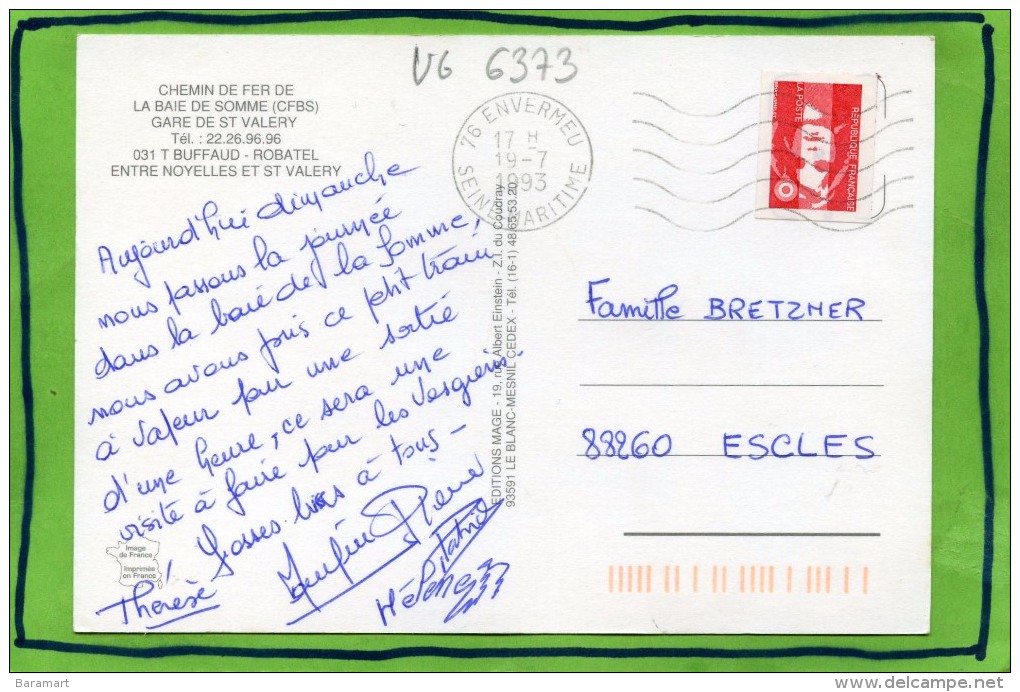 VG 6373
CHEMIN DE FER DE
LA BAIE DE SOMME (CFBS)
GARE DE ST VALERY
Tél. : 22.26.96.96
031 T BUFFAUD - ROBATEL
ENTRE NOYELLES ET ST VALERY
76 ENVERMEU
17 H
19-7
1993
SEINE MARITIME
REPUBLIQUE FRANÇAISE
LA POSTE
Aujourd'hui dimanche
nous passons la journée
dans la baie de la Somme,
nous avons pris ce ptit train
à vapeur pour une sortie
d'une heure, ce sera une
visite à faire pour les Vosgiens.
Grosses bises à tous -
Pierre
Patrick
Hélène
Thérèse
EDITIONS MAGE - 19, rue Albert Einstein - Z.I. du Coudray
93591 LE BLANC-MESNIL CEDEX - Tél. (16-1) 48.65.53.20
Famille BRETZNER
88260 ESCLES
Image
de France
Imprimée
en France
Baramart
delcampe.net